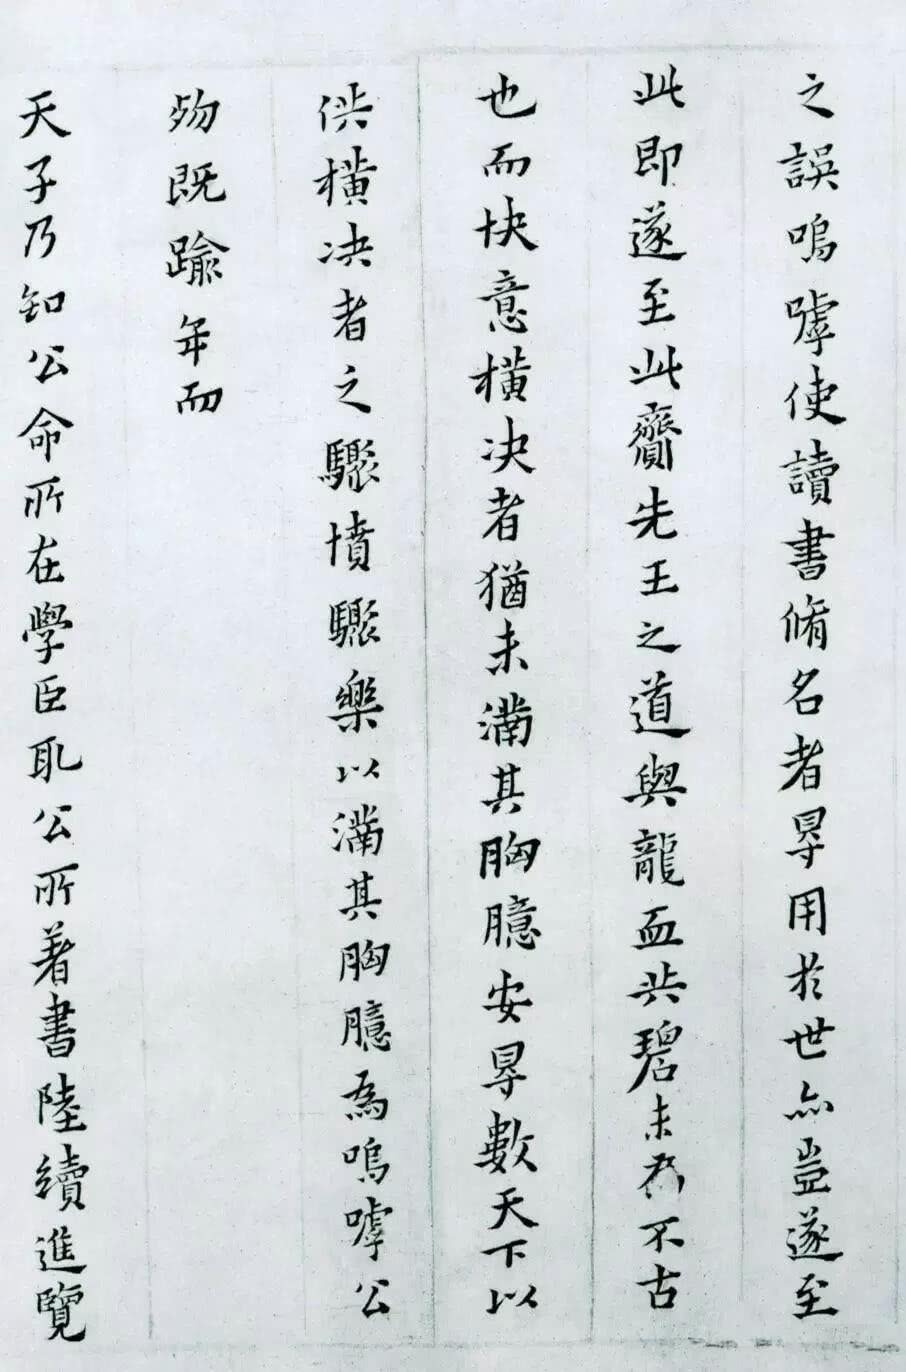 之誤嗚嘑使讀書脩名者㝵用於世亦豈遂至
此即遂至此齎先王之道與龍血共碧未為不古
也而快意橫决者猶未滿其胸臆安㝵數天下以
供橫决者之驟墳驟樂以滿其胸臆為嗚嘑公
歾既踰年而
天子乃知公命所在學臣取公所著書陸續進覽